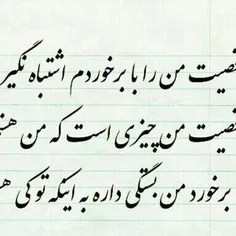 نصیت من را با برخوردم اشتباه نگیر
نصیت من چیزی است که من هستم
برخورد من بستگی داره به اینکه تو کی